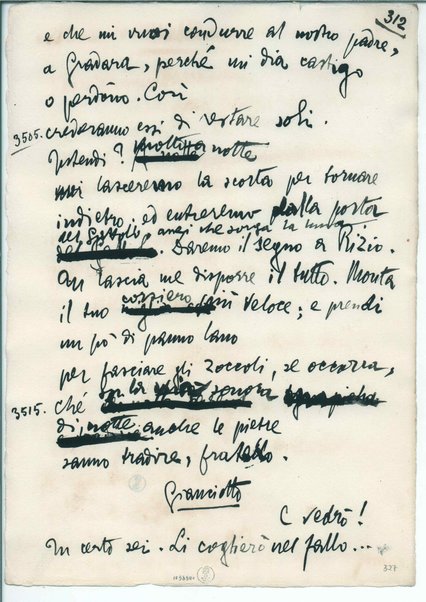 312
e che mi vuoi condurre al nostro padre,
a Gradara, perché mi dia castigo
o perdóno. Così
3505. crederanno essi di restare soli.
Intendi? notte
noi lasceremo la scorta per tornare
indietro, ed entreremo dalla porta
del Gattolo, anzi che sorga la luna
Daremo il segno a Rizio.
Ma lascia me disporre il tutto. Monta
il tuo corsiero più veloce; e prendi
un pò di panno lano
per fasciare gli zoccoli, se occorra,
3515. ché
di notte anche le pietre
sanno tradire, fratello.
Gianciotto
E vedrò!
Tu certo sei. Li coglierò nel fallo...
327